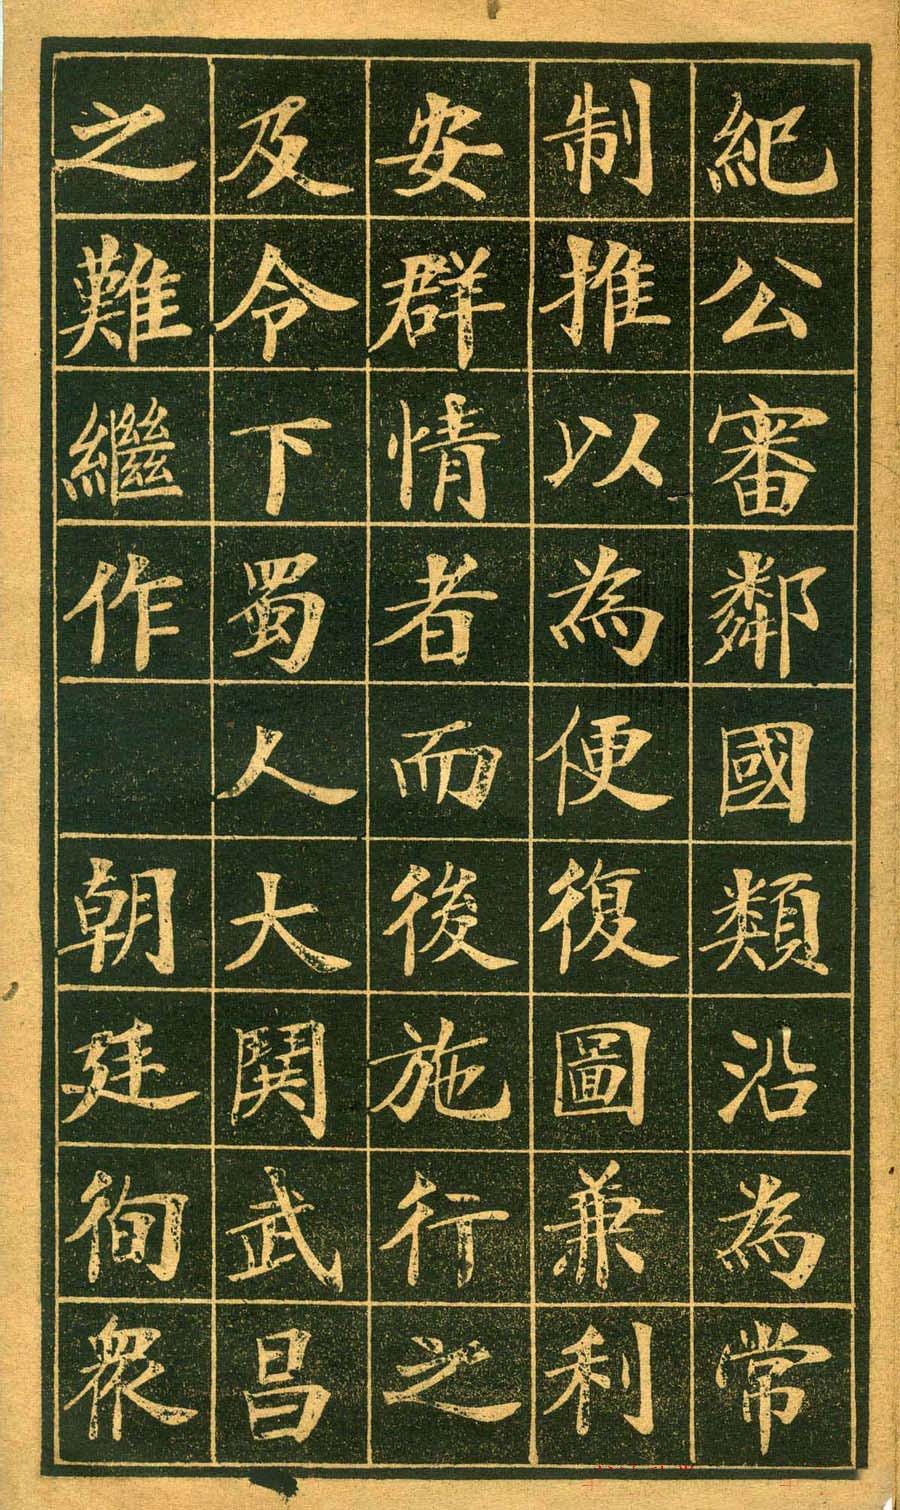 紀公審鄰國類沿為常
制推以為便復圖兼利
安群情者而後施行之
及令下蜀人大鬨武昌
之難繼作朝廷徇衆